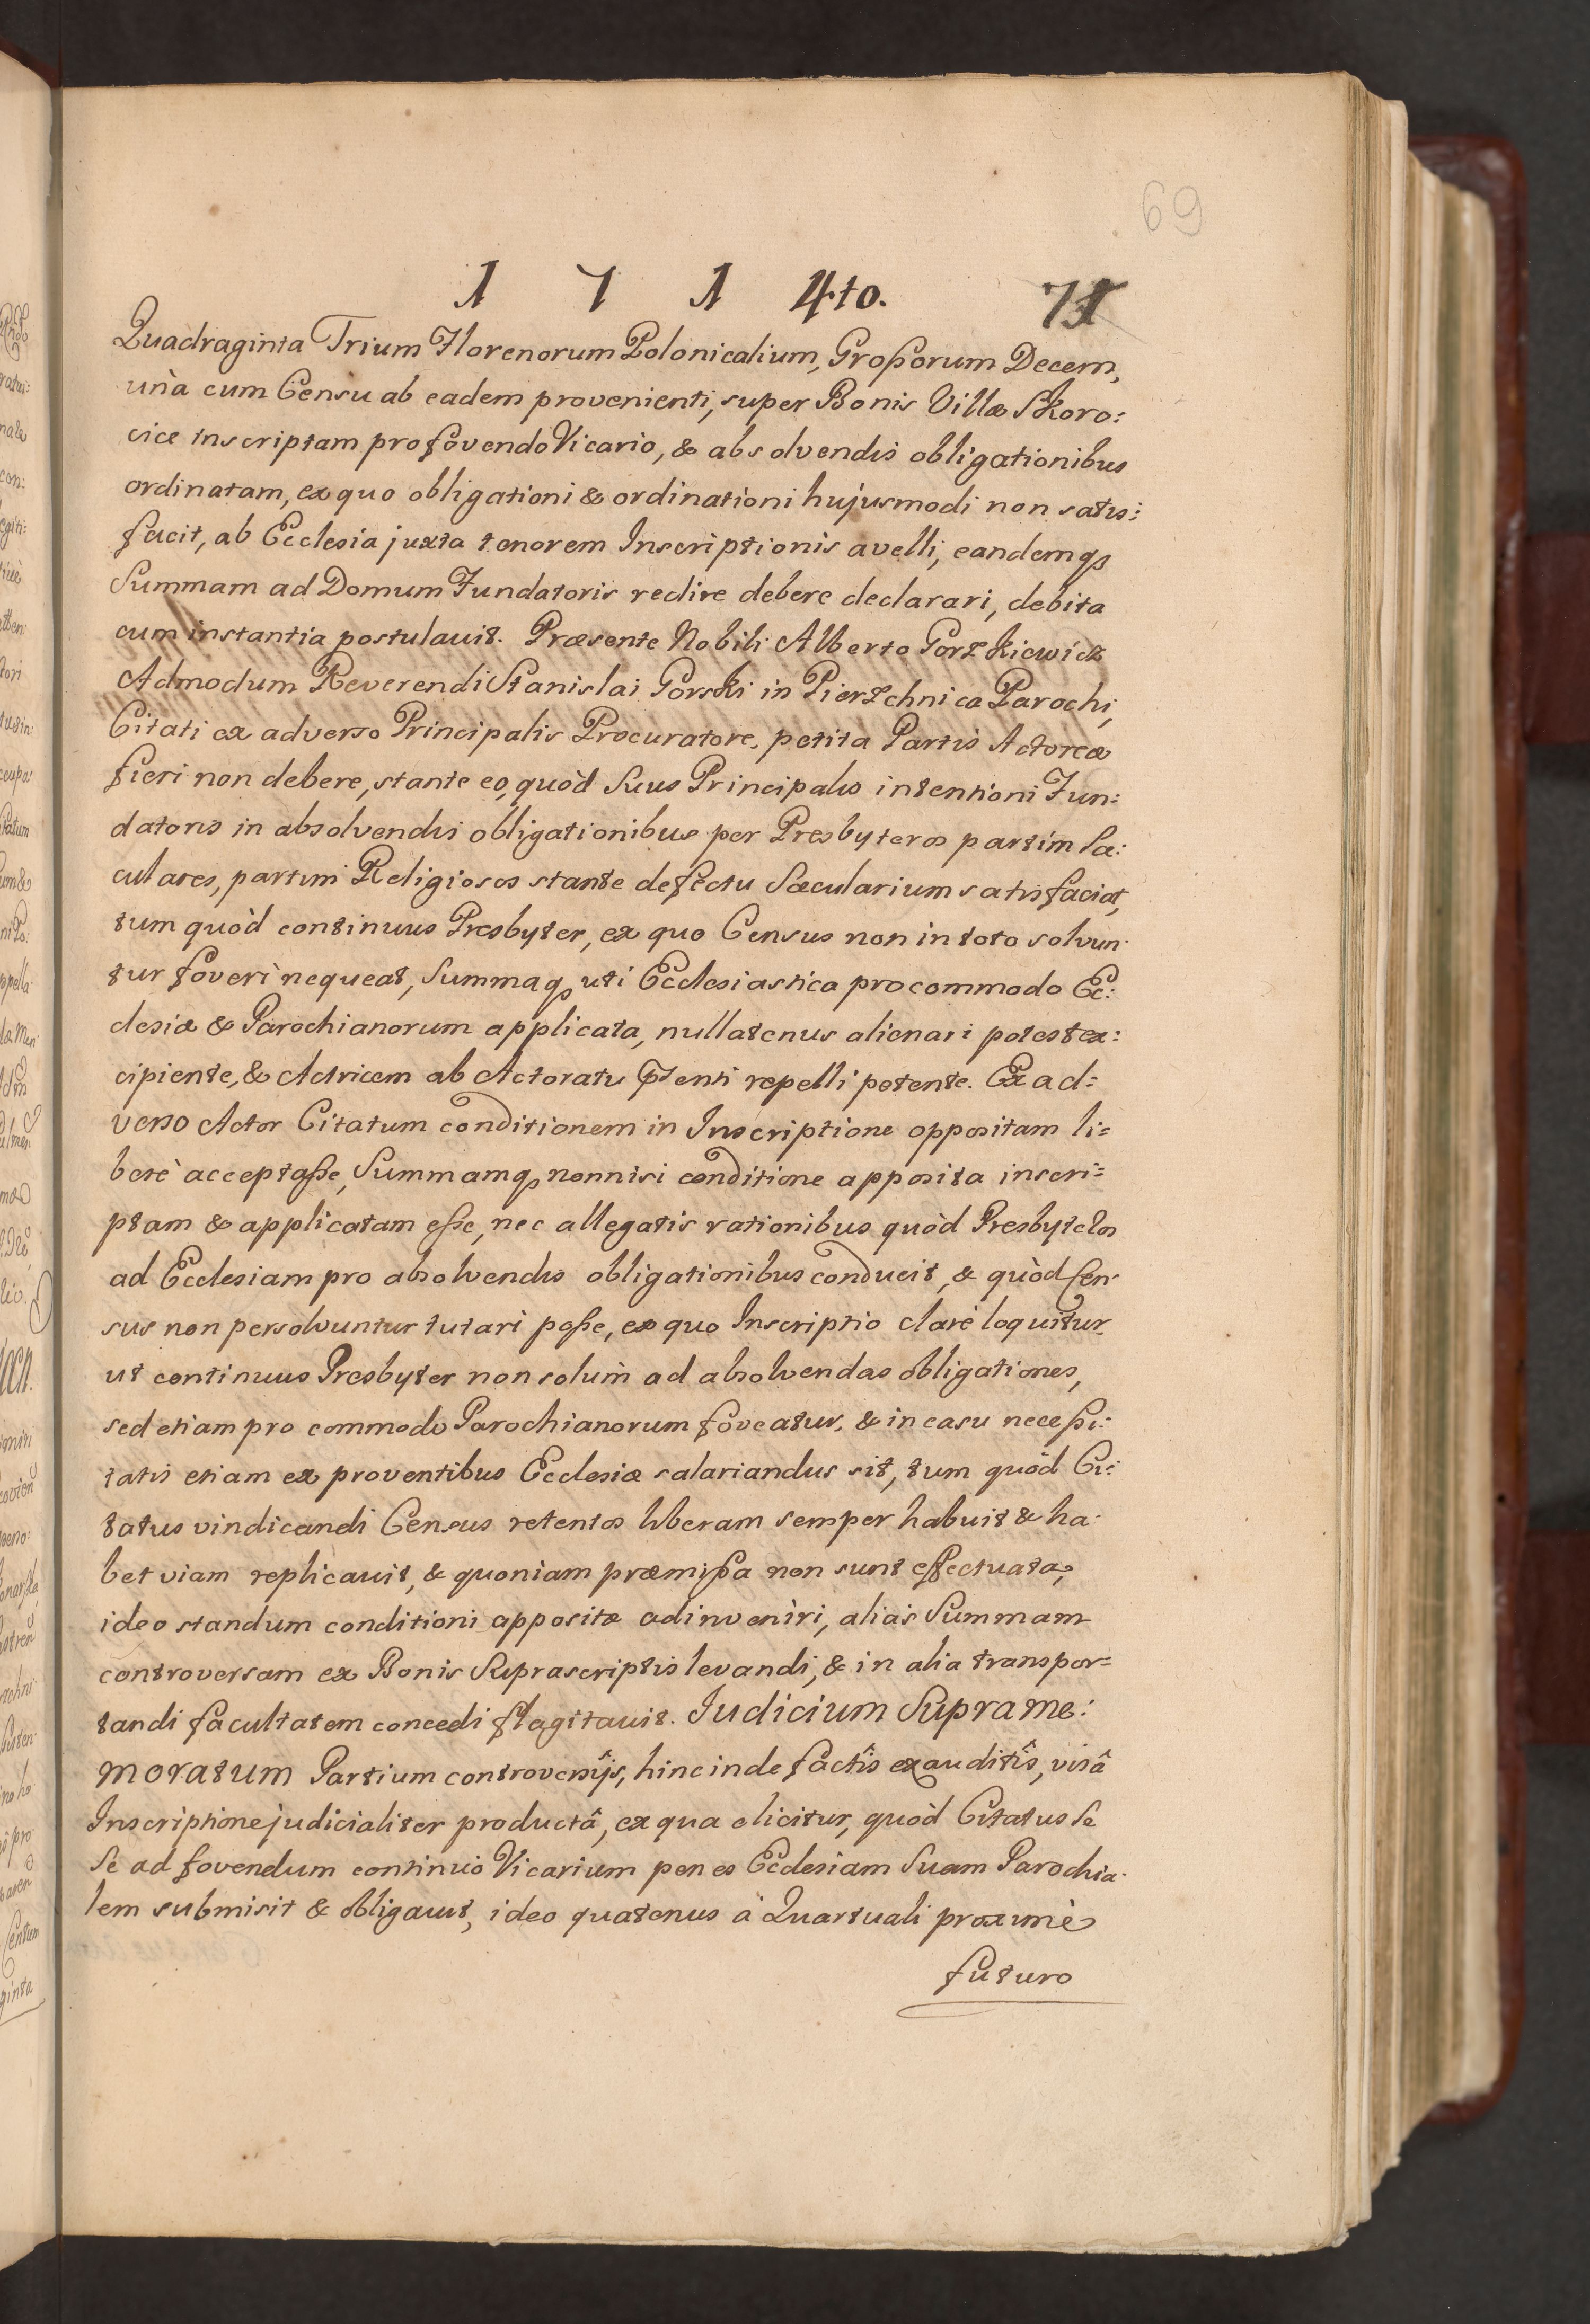 69
1 7 1 4to. 71
Quadraginta Trium Florenorum Polonicalium, Großorum Decem,
unà cum Censu ab eadem provenienti, super Bonis Villæ Skoro:
cice inscriptam pro fovendo Vicario, & absolvendis obligationibus
ordinatam, ex quo obligationi & ordinationi hujusmodi non satis:
facit, ab Ecclesia juxta tenorem Inscriptionis avelli, eandemqȝ
Summam ad Domum Fundatoris redire debere declarari, debita
cum instantia postulavit. Præsente Nobili Alberto Gorzkiewicz
Admodum Reverendi Stanislai Gorski in Pierzchnica Parochi,
Citati ex adverso Principalis Procuratore, petita Partis Actoreæ
fieri non debere, stante eo, quòd Suus Principalis intentioni Fun:
datoris in absolvendis obligationibus per Presbyteros partim Sæ:
culares, partim Religiosos stante defectu Sæcularium satisfaciat,
tum quòd continuus Presbyter, ex quo Census non in toto solvun:
tur foveri nequeat, Summaqȝ uti Ecclesiastica pro commodo Ec:
clesiæ & Parochianorum applicata, nullatenus alienari potest ex:
cipiente, & Actricem ab Actoratu p͞senti repelli petente. Ex ad:
verso Actor Citatum conditionem in Inscriptione oppositam li:
berè acceptaße, Summamqȝ nonnisi conditione apposita inscri:
ptam & applicatam eße, nec allegatis rationibus quòd Presbyteros
ad Ecclesiam pro absolvendis obligationibus conducit, & quòd Cen:
sus non persolvuntur tutari poße, ex quo Inscriptio clarè loquitur
ut continuus Presbyter non solùm ad absolvendas obligationes,
sed etiam pro commodo Parochianorum foveatur, & in casu neceßi:
tatis etiam ex proventibus Ecclesiæ salariandus sit, tum quòd Ci:
tatus vindicandi Census retentos liberam semper habuit & ha:
bet viam replicavit, & quoniam præmißa non sunt effectuata,
ideo standum conditioni appositæ adinveniri, aliàs Summam
controversam ex Bonis Suprascriptis levandi, & in alia transpor:
tandi facultatem concedi flagitavit. Judicium Suprame:
moratum Partium controversijs, hinc inde factîs exauditîs, visâ
Inscriptione judicialiter productâ, ex qua elicitur, quòd Citatus Se
Se ad fovendum continuò Vicarium penes Ecclesiam Suam Parochia:
lem submisit & obligavit, ideo quatenus à Quartuali proximè
futuro